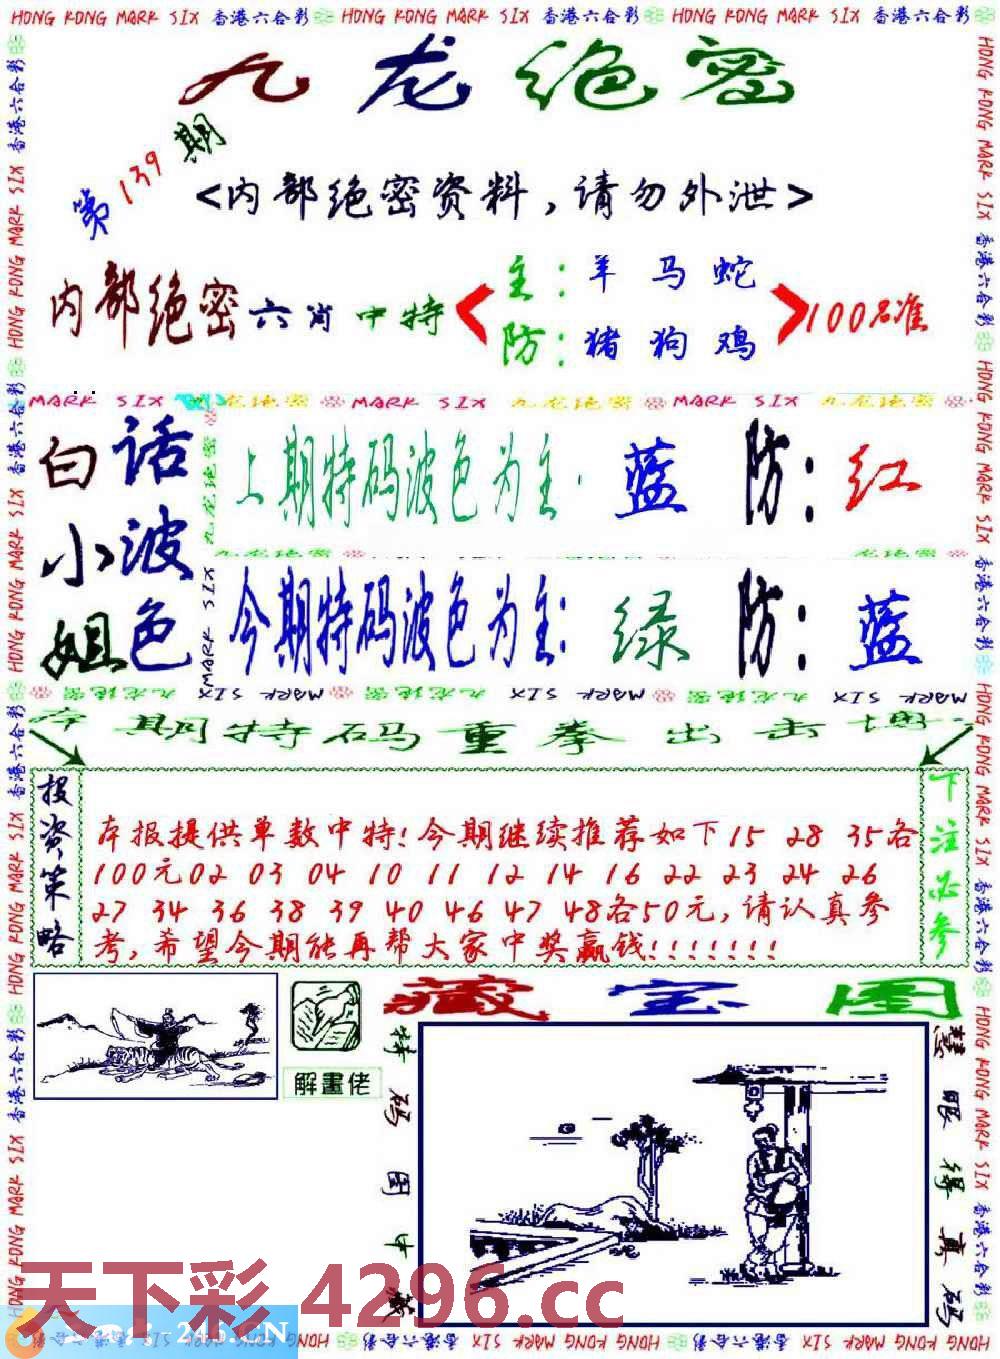 HONG KONG MARK SIX 香港六合彩 HONG KONG MARK SIX 香港六合彩 HONG KONG MARK SIX 香港六合彩
九龙绝密
第139期
<内部绝密资料,请勿外泄>
内部绝密六肖中特
主:羊 马 蛇
防:猪 狗 鸡
100%准
MARK SIX 九龙绝密 MARK SIX 九龙绝密 MARK SIX 九龙绝密
白小姐
话波色
上期特码波色为主·蓝 防:红
今期特码波色为主:绿 防:蓝
本期特码重拳出击
投资策略
本报提供单数中特!今期继续推荐如下15 28 35各
100元02 03 04 10 11 12 14 16 22 23 24 26
27 34 36 38 39 40 46 47 48各50元,请认真参
考,希望今期能再帮大家中奖赢钱!!!!!!!
下注必参
藏宝图
解畫佬
特码图中藏
慧眼得真码
天下彩 4296.cc
246.CN